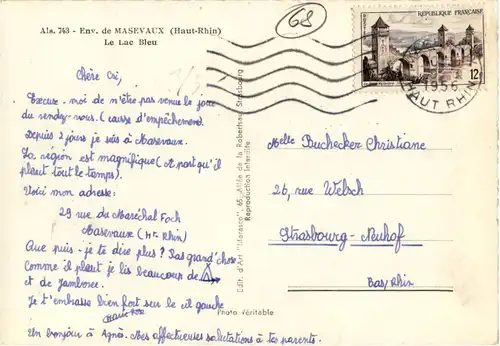 Als. 743 - Env. de MASEVAUX (Haut-Rhin)
Le Lac Bleu
68
REPUBLIQUE FRANÇAISE
12F
1956
HAUT RHIN
Chère Cri,
Excuse-moi de n'être pas venue le jour
du rendez-vous. (cause d'empêchement)
Depuis 2 jours je suis à Masevaux.
La région est magnifique (A part qu'il
pleut tout le temps).
Voici mon adresse:
29 rue du Maréchal Foch
Masevaux (Ht-Rhin)
Que puis-je te dire plus? Pas grand'chose
Comme il pleut je lis beaucoup de
et de Jamboree.
Je t'embrasse bien fort sur le œil gauche
Un bonjour à Agnès. Mes affectueuses salutations à tes parents.
Edit. d'Art "Maresco" 46, Allée de la Robertsau, Strasbourg
Reproduction Interdite
Photo Véritable
Melle Buchecker Christiane
26, rue Welsch
Strasbourg-Neuhof
Bas/Rhin